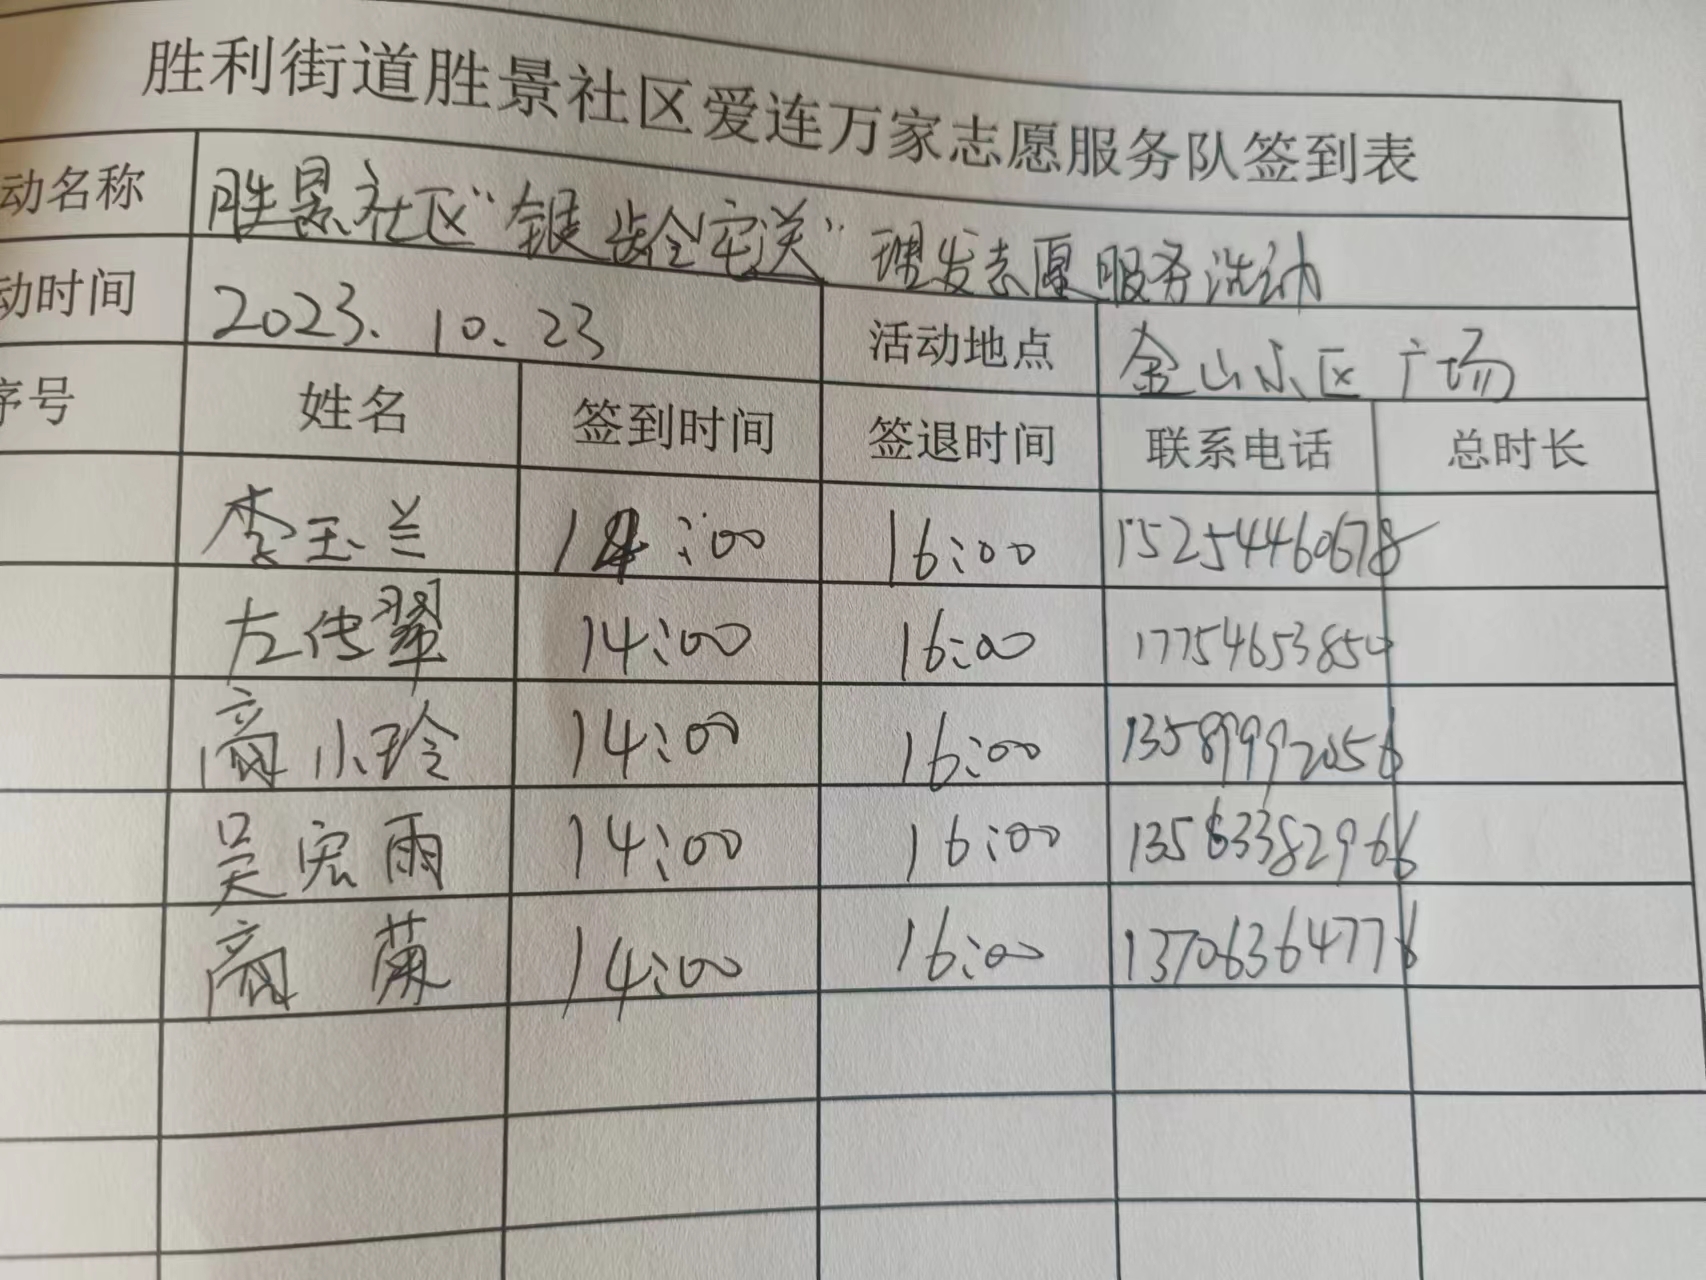 胜利街道胜景社区爱连万家志愿服务队签到表
动名称 胜景社区“银龄宅送”理发志愿服务活动
动时间 2023.10.23 活动地点 金山小区广场
序号 姓名 签到时间 签退时间 联系电话 总时长
李玉兰 14:00 16:00 15254460678
左传翠 14:00 16:00 17754653850
商小玲 14:00 16:00 13589992056
吴宏雨 14:00 16:00 13563382966
商 14:00 16:00 13706364776